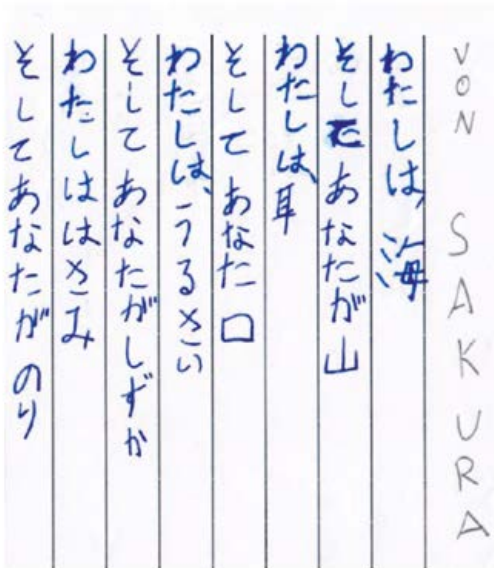 VON SAKURA
わたしは、海
そしてあなたが山
わたしは、耳
そしてあなた口
わたしは、うるさい
そしてあなたがしずか
わたしははさみ
そしてあなたがのり